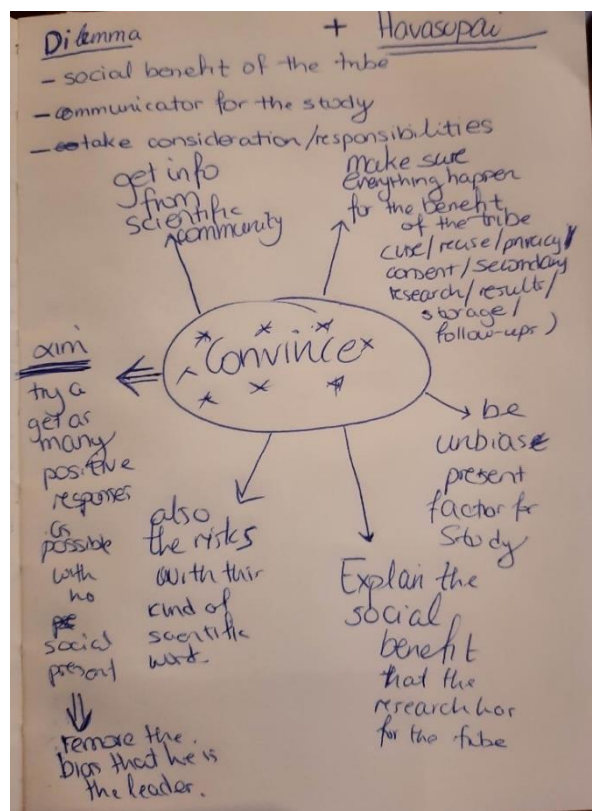 Dilemma + Havasupai
- social benefit of the tribe
- communicator for the study
- take consideration/responsibilities
get info
from
scientific
community
make sure
everything happen
for the benefit
of the tribe
cure/reuse/privacy/
consent/secondary
research/results/
storage/
follow-ups)
Convince
aim
try a
get as
many
positive
responses
as
possible
with
no
social
present
remove the
bias that he is
the leader.
also
the risks
with this
kind of
scientific
work.
Explan the
social
benefit
that the
research has
for the tribe
be
unbiase
present
factor for
study